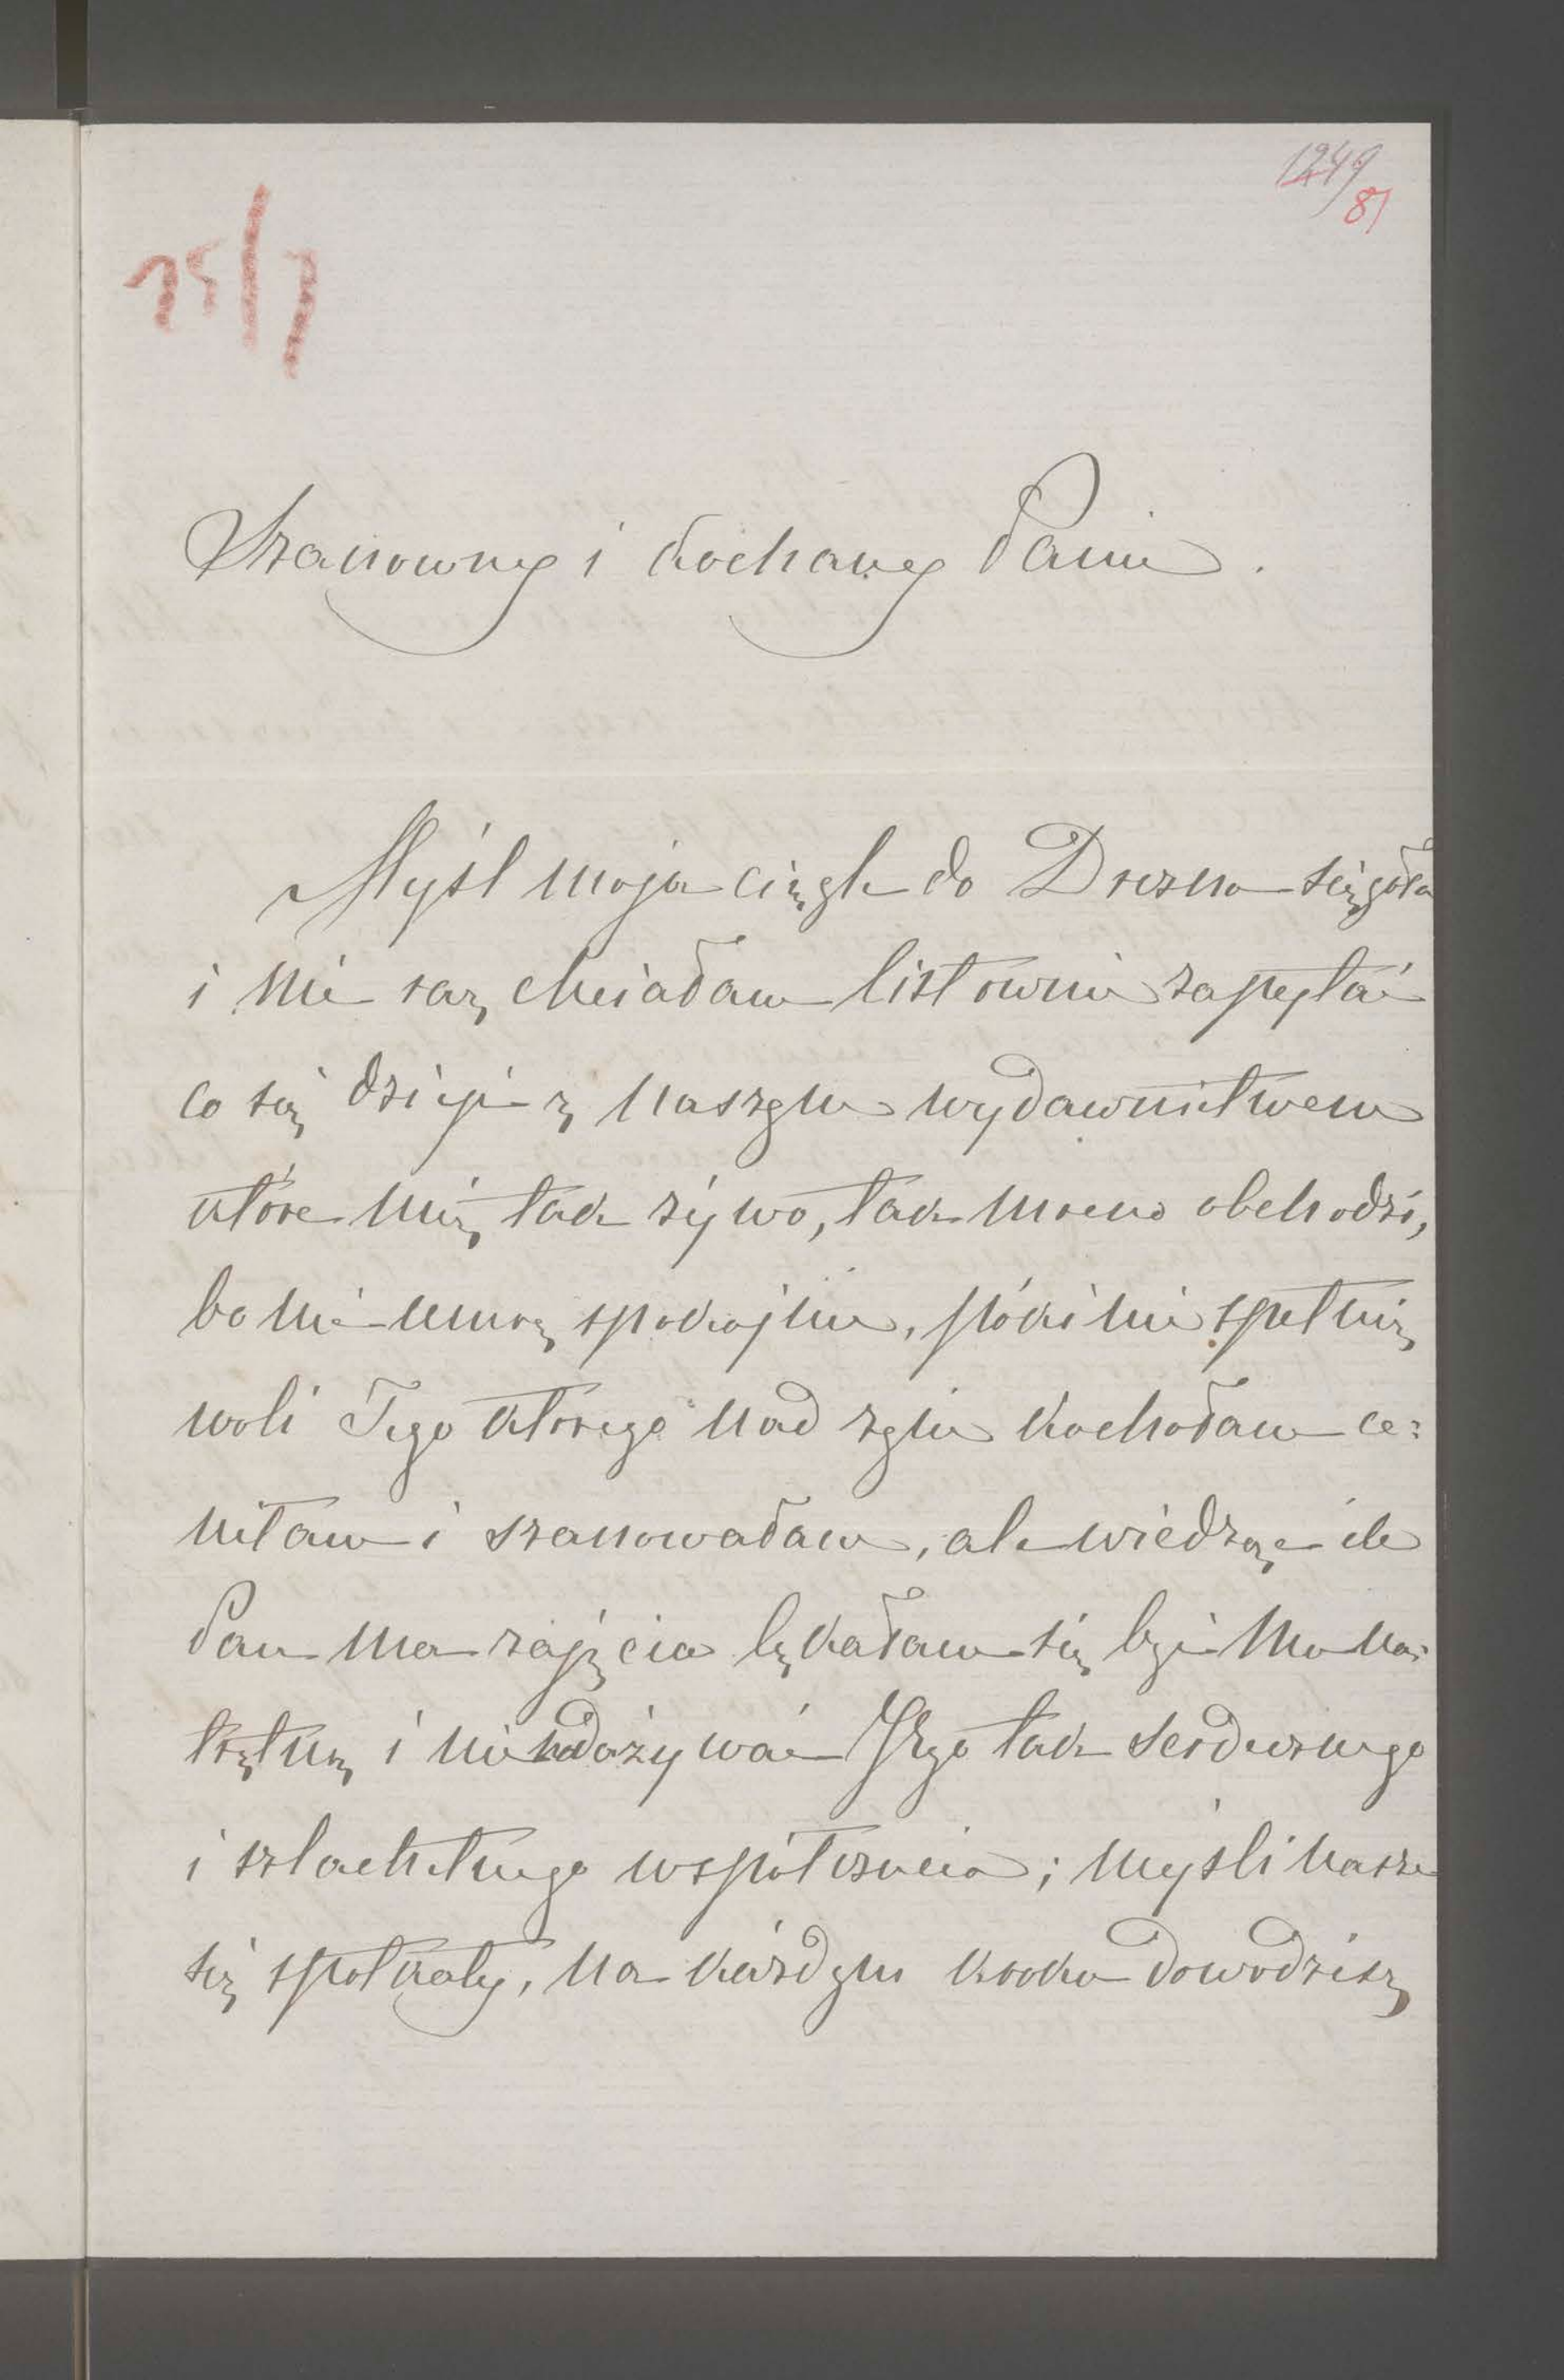 1249
81
15/7
Szanowny i kochany Panie.
Myśl moja ciągle do Drezna sięgała
i nie raz chciałam listownie zapytać
co się dzieje z naszem wydawnictwem
które mię tak żywo, tak mocno obchodzi,
bo nie umrę spokojnie, póki nie spełnię
woli Tego którego nad życie kochałam ce:
niłam i szanowałam, ale wiedząc ile
Pan ma zajęcia lękałam się być mu na:
trętną i nie nadużywać Jego tak serdecznego
i szlachetnego współczucia; myśli nasze
się spotkały, na każdym kroku dowodzisz